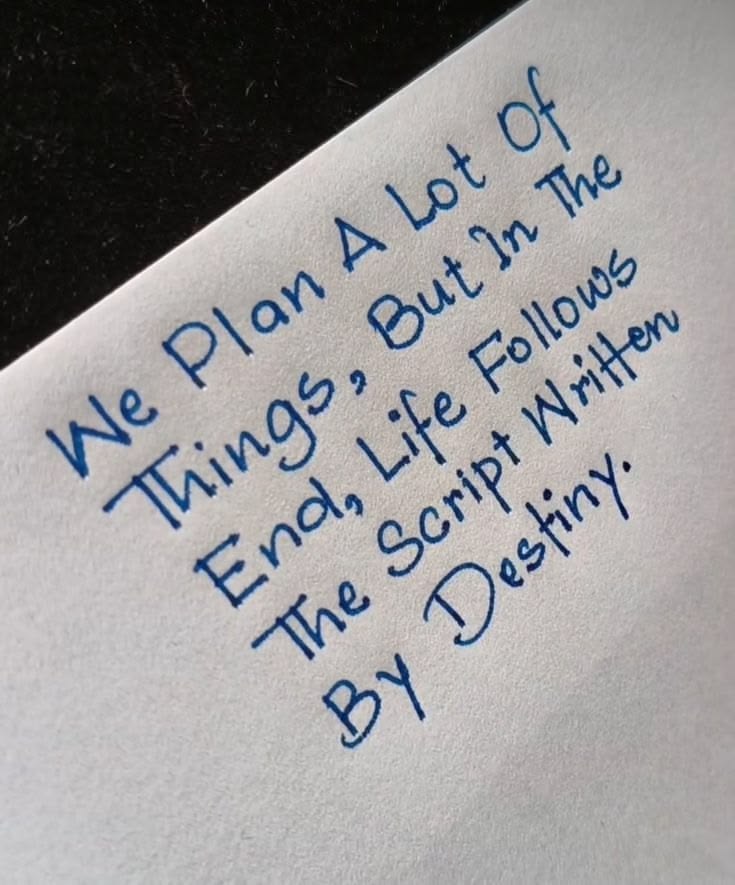 We Plan A Lot Of
Things, But In The
End, Life Follows
The Script Written
By Destiny.